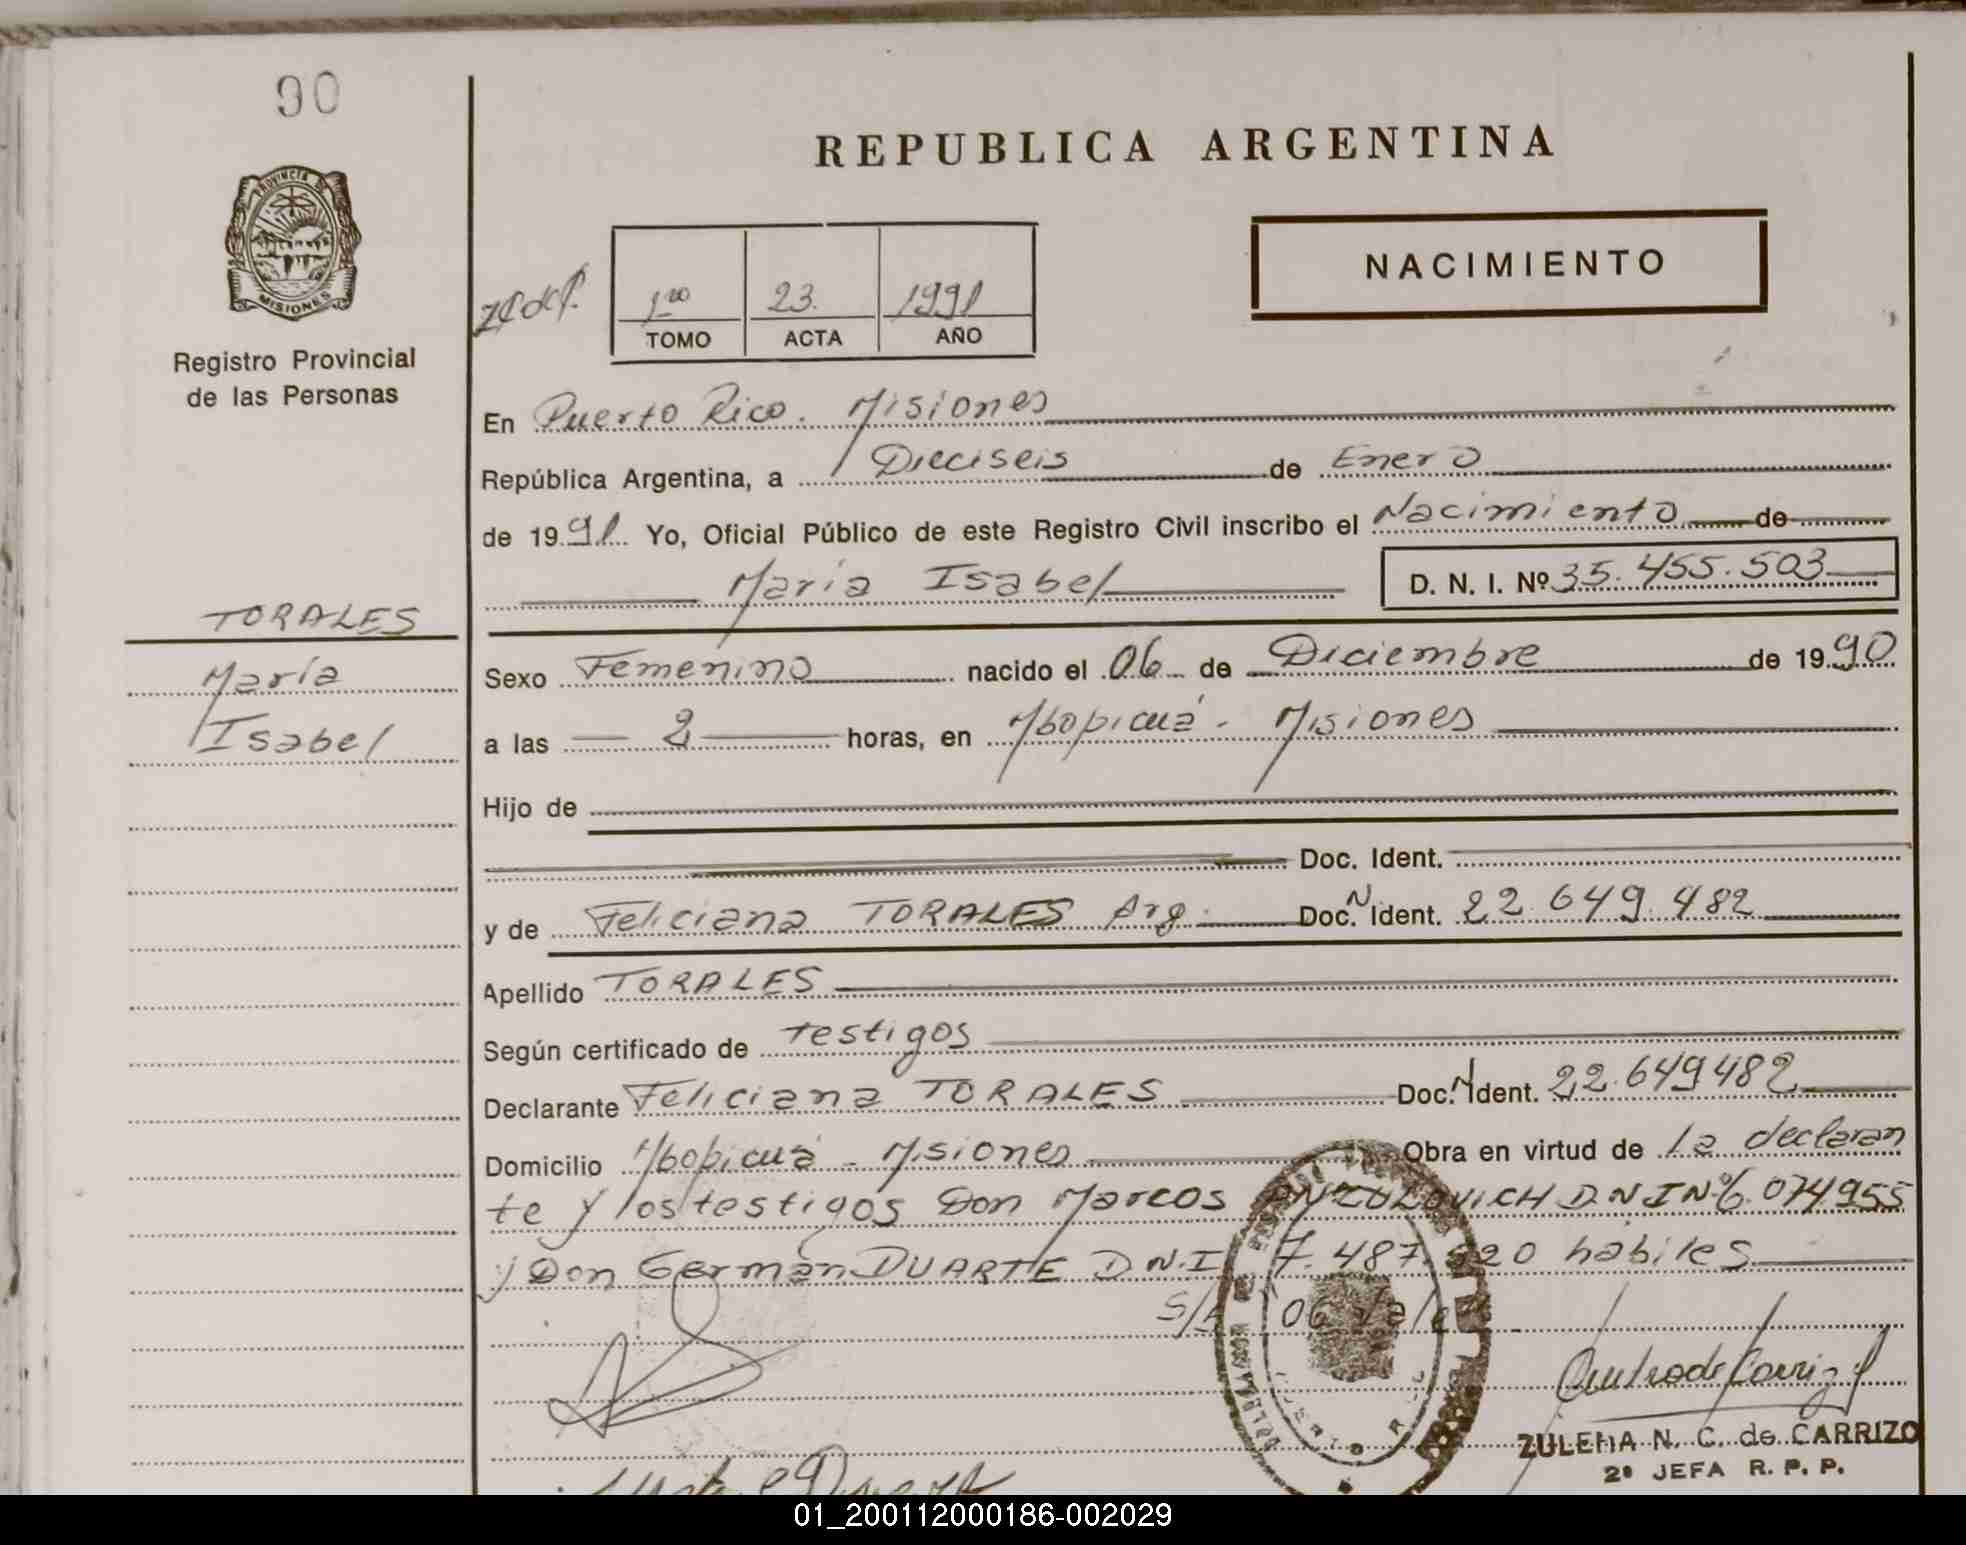 90
REPUBLICA ARGENTINA
PROVINCIA DE
MISIONES
NACIMIENTO
1ro 23. 1991
TOMO ACTA AÑO
Registro Provincial
de las Personas
En Puerto Rico. Misiones
República Argentina, a Dieciseis de Enero
de 1991 Yo, Oficial Público de este Registro Civil inscribo el Nacimiento de
María Isabel D. N. I. Nº 35.455.503
TORALES
María
Isabel
Sexo Femenino nacido el 06 de Diciembre de 1990
a las 2 horas, en Mbopicuá - Misiones
Hijo de
Doc. Ident.
y de Feliciana TORALES Arg. Doc. N Ident. 22.649.482
Apellido TORALES
Según certificado de testigos
Declarante Feliciana TORALES Doc. N Ident. 22.649482
Domicilio Mbopicuá - Misiones Obra en virtud de la declaran
te y los testigos Don Marcos ANZULOVICH D N I Nº 6.074955
y Don Germán DUARTE D.N.I 7.487.920 hábiles
06
ZULEMA N. C. de CARRIZO
2ª JEFA R. P. P.
01_200112000186-002029